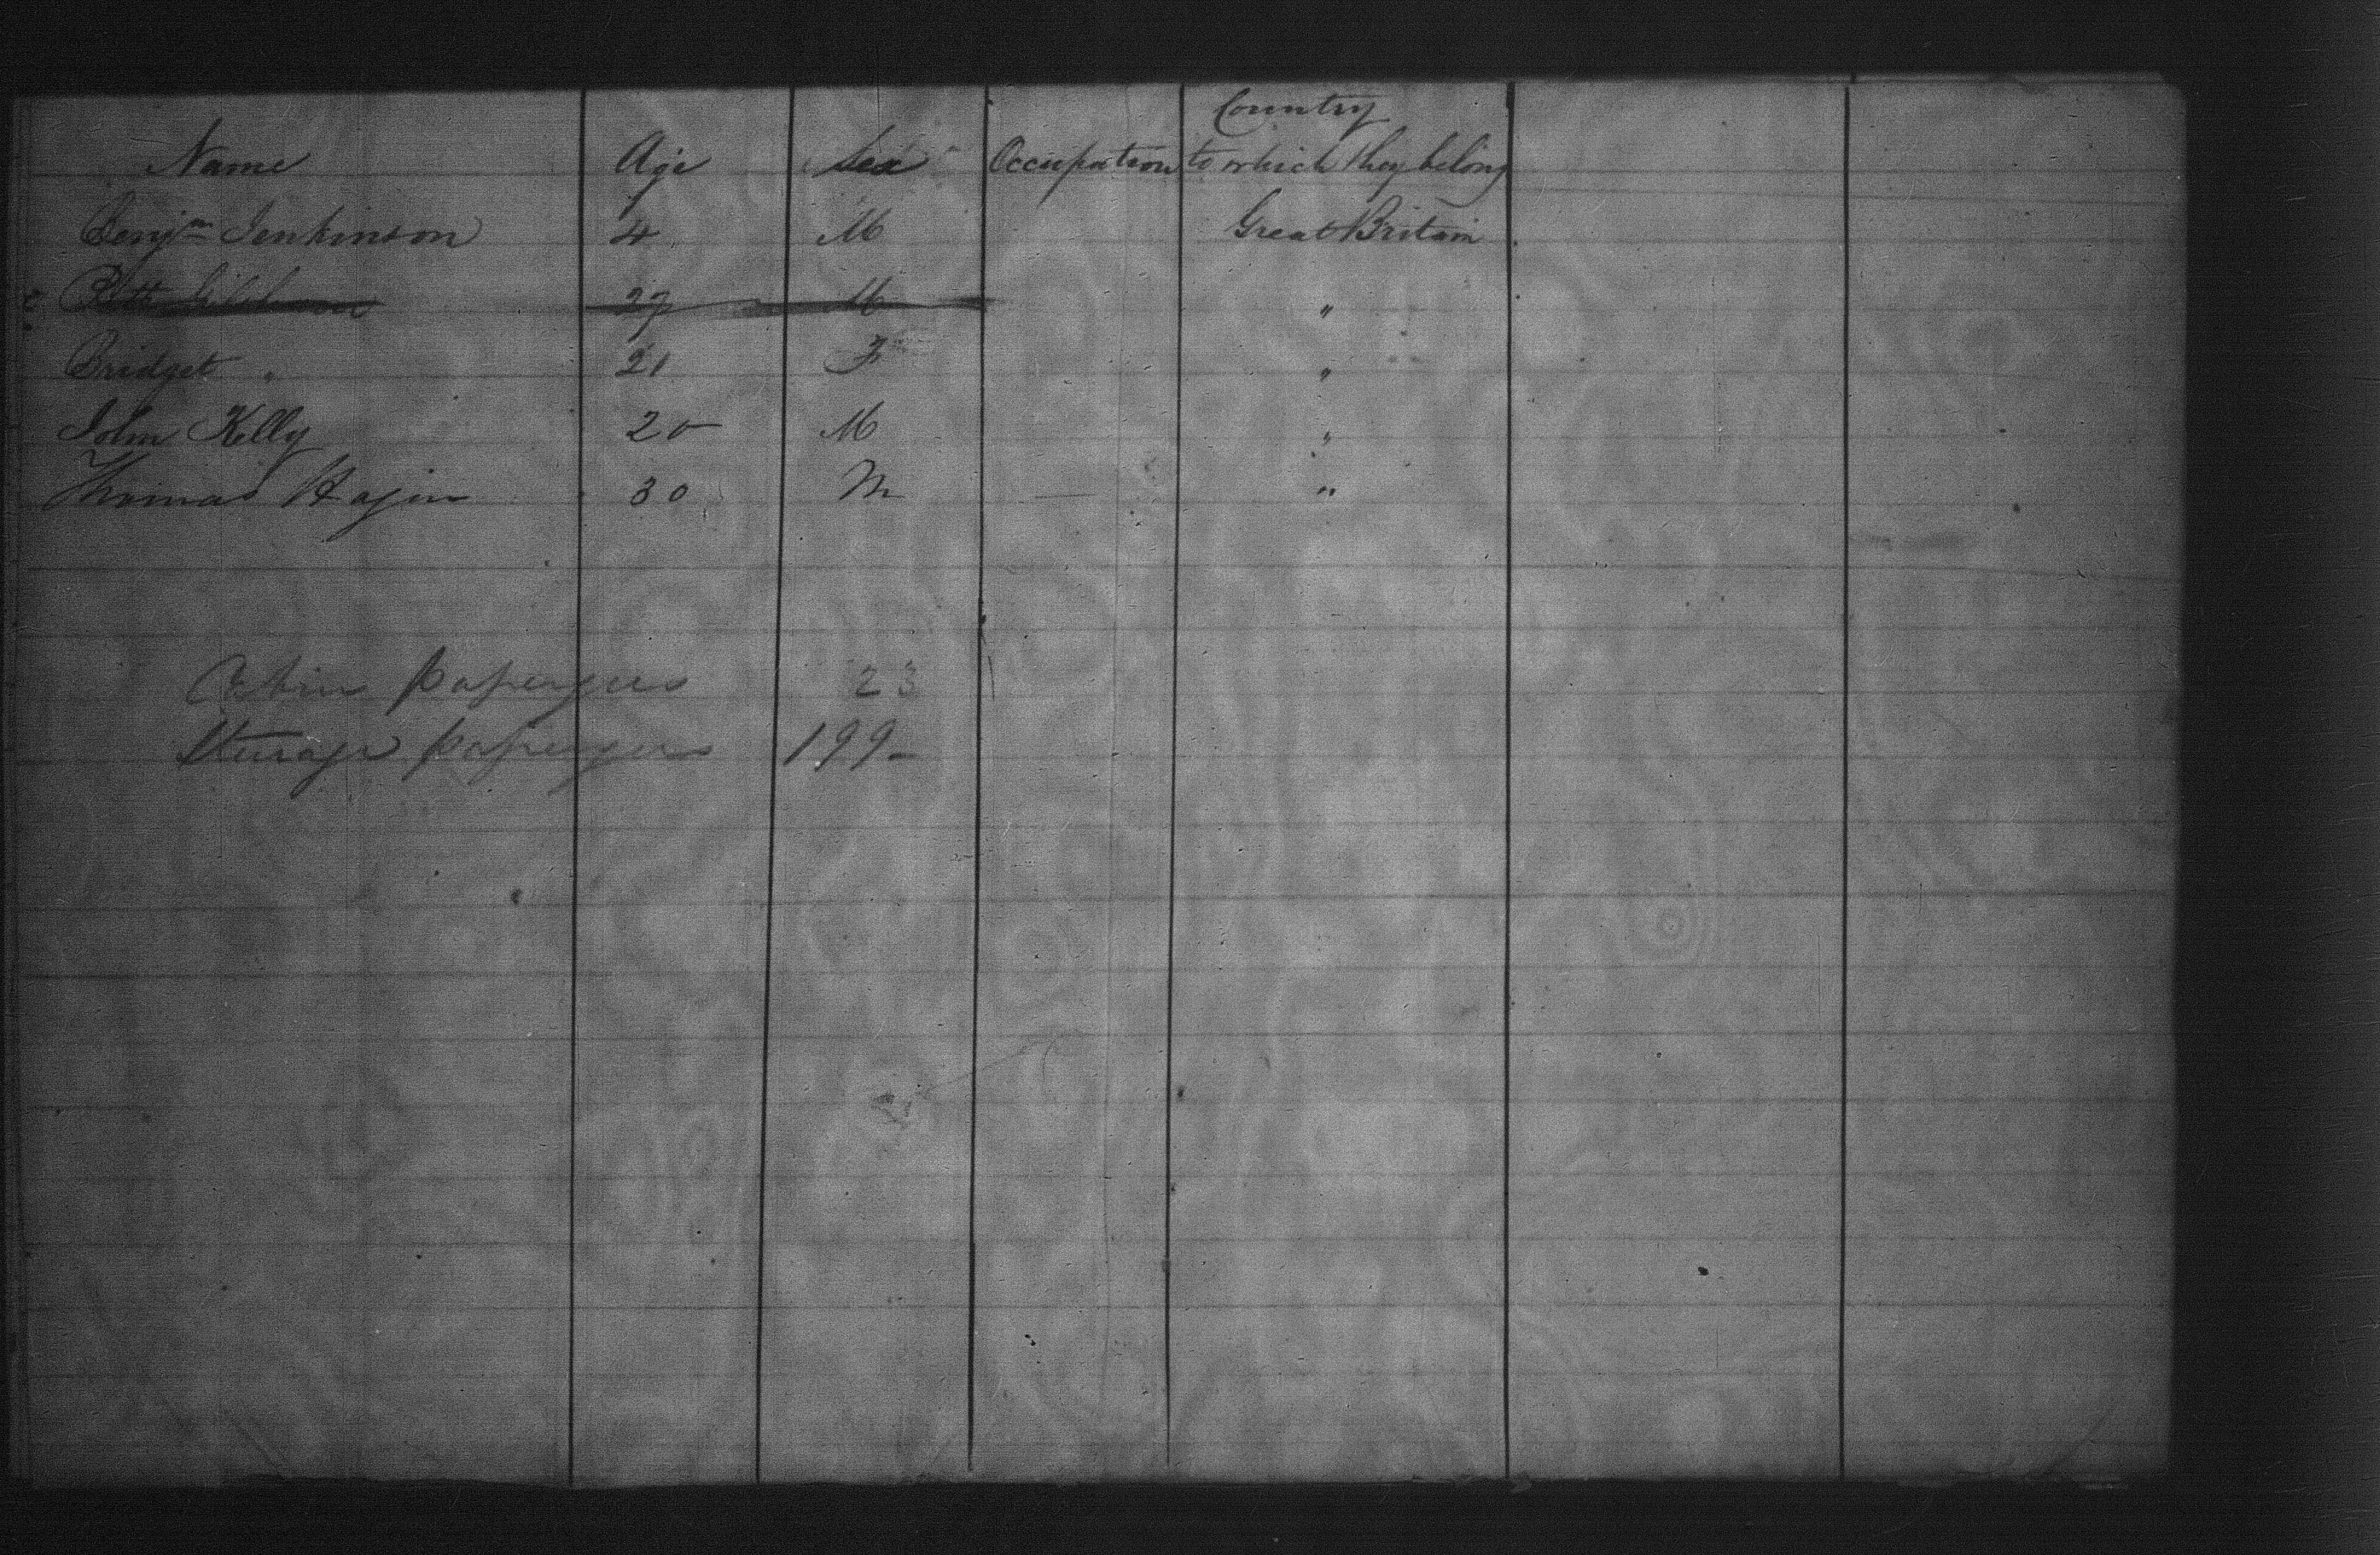 Country
Name Age Sex Occupation to which they belong
Benjm Jenkinson 4 M Great Britain
27 M "
Bridget " 21 F "
John Kelly 20 M "
Thomas Hagin 30 M "
Cabin passengers 23
Sterage passengers 199